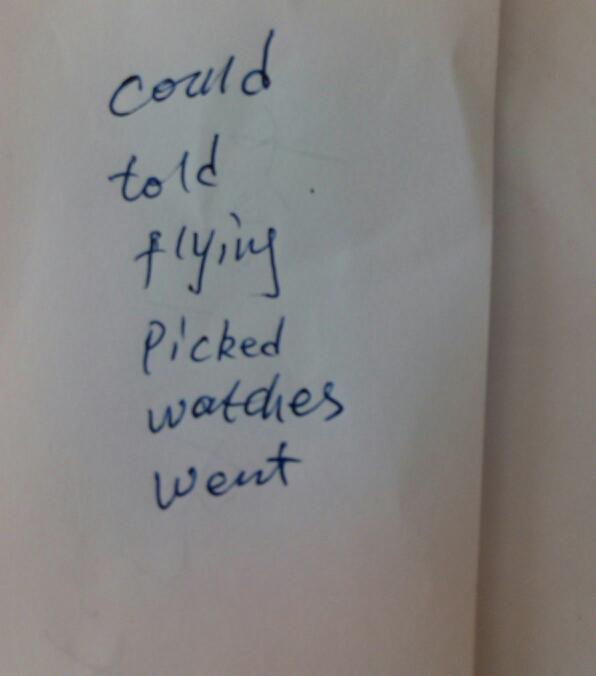 could
told
flying
picked
watches
went